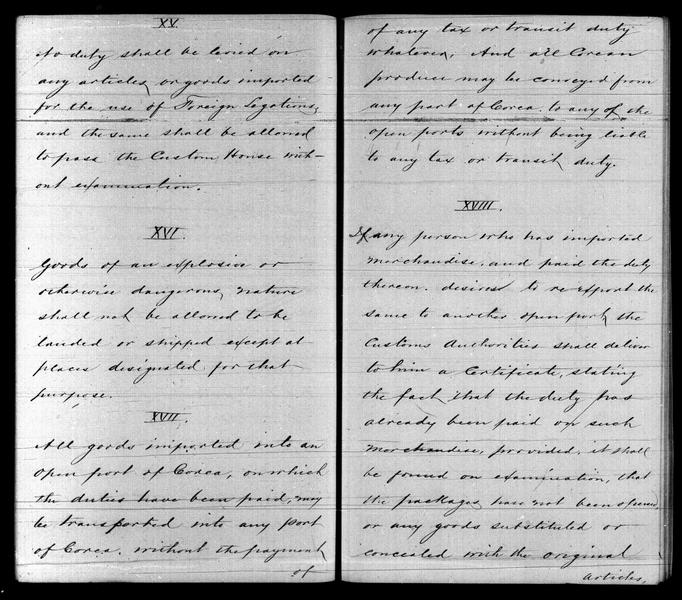 XV.
No duty shall be levied on
any articles, or goods imported
for the use of Foreign Legations,
and the same shall be allowed
to pass the Custom House with-
out examination.
XVI.
Goods of an explosive or
otherwise dangerous, nature
shall not be allowed to be
landed or shipped except at
places designated for that
purpose.
XVII.
All goods imported into an
open port of Corea, on which
the duties have been paid, may
be transported into any part
of Corea. without the payment
of
of any tax or transit duty
whatever, And all Corean
produce may be conveyed from
any part of Corea. to any of the
open ports without being liable
to any tax or transit duty.
XVIII.
If any person who has imported
merchandise. and paid the duty
thereon. desires to re-export the
same to another open port, the
Customs Authorities shall deliver
to him a Certificate, stating
the fact that the duty has
already been paid on such
merchandise, provided, it shall
be found on examination, that
the packages have not been opened
or any goods substituted or
concealed with the original
articles,